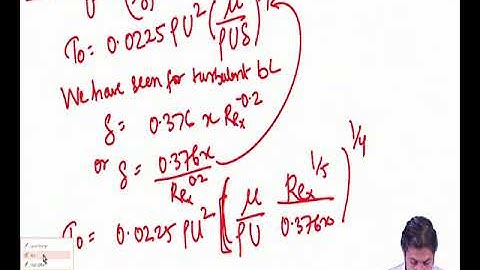 τ₀ = 0.0225 ρU² (μ/ρUδ)
We have seen for turbulent bL
δ = 0.376 x Reₓ^-0.2
or δ = 0.376x/Reₓ^0.2
τ₀ = 0.0225 ρU² [μ/ρU Reₓ^1/5/0.376x]^1/4